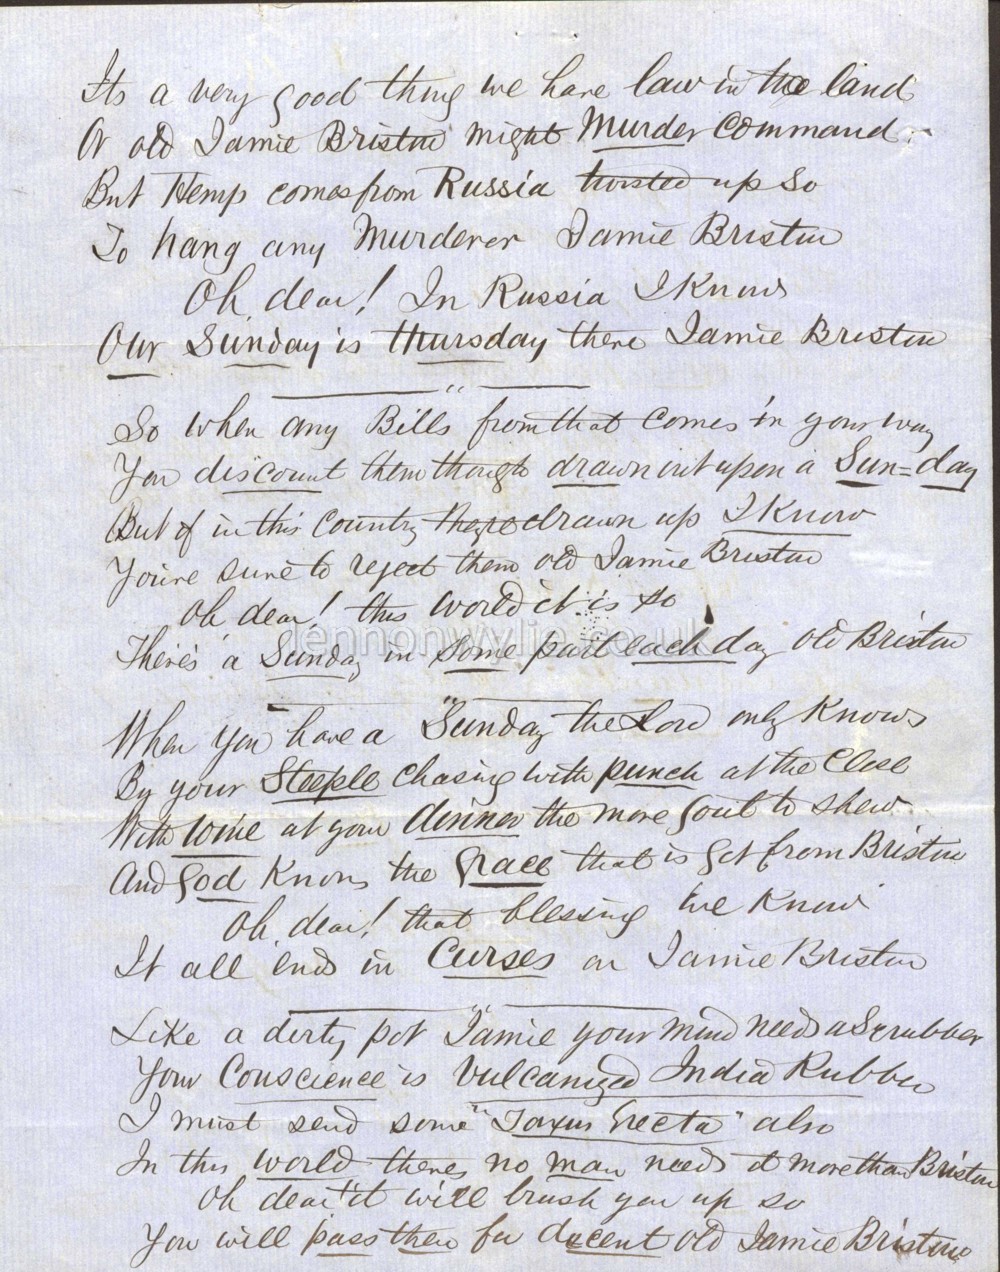 Its a very good thing we have law in the land
Or old Jamie Bristow might Murder Command.
But Hemp comes from Russia twisted up so
To hang any Murderer Jamie Bristow
Oh, dear! In Russia I Knows
Our Sunday is thursday there Jamie Bristow
So when any Bills from that comes in your way
You discount them though drawn out upon a Sun=day
But if in this Country they're drawn up I Know
You're sure to reject them old Jamie Bristow
Oh dear! this World it is so
There's a Sunday in Some part each day old Bristow
lennonwylie.co.uk
When you have a Sunday the Lord only Knows
By your Steeple chasing with punch at the Close
With wine at your dinner the more Gout to shew
And God Knows the Grace that is got from Bristow
Oh, dear! that blessing we Know
It all ends in Curses on Jamie Bristow
Like a dirty pot Jamie your mind needs a Scrubber
Your Conscience is Vulcanized India Rubber
I must send some "Taxus Erecta" also
In this world theres no man needs it more than Bristow
Oh dear! it will brush you up so
You will pass then for decent old Jamie Bristow